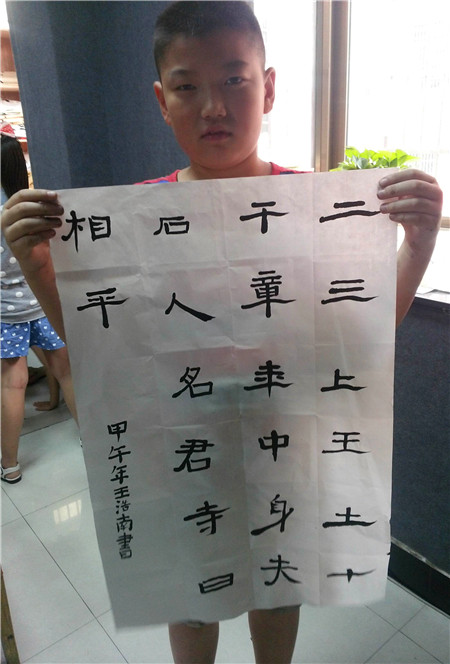 二三上王土十
干章年中身夫
石人名君寺曰
相平
甲午年王浩南書